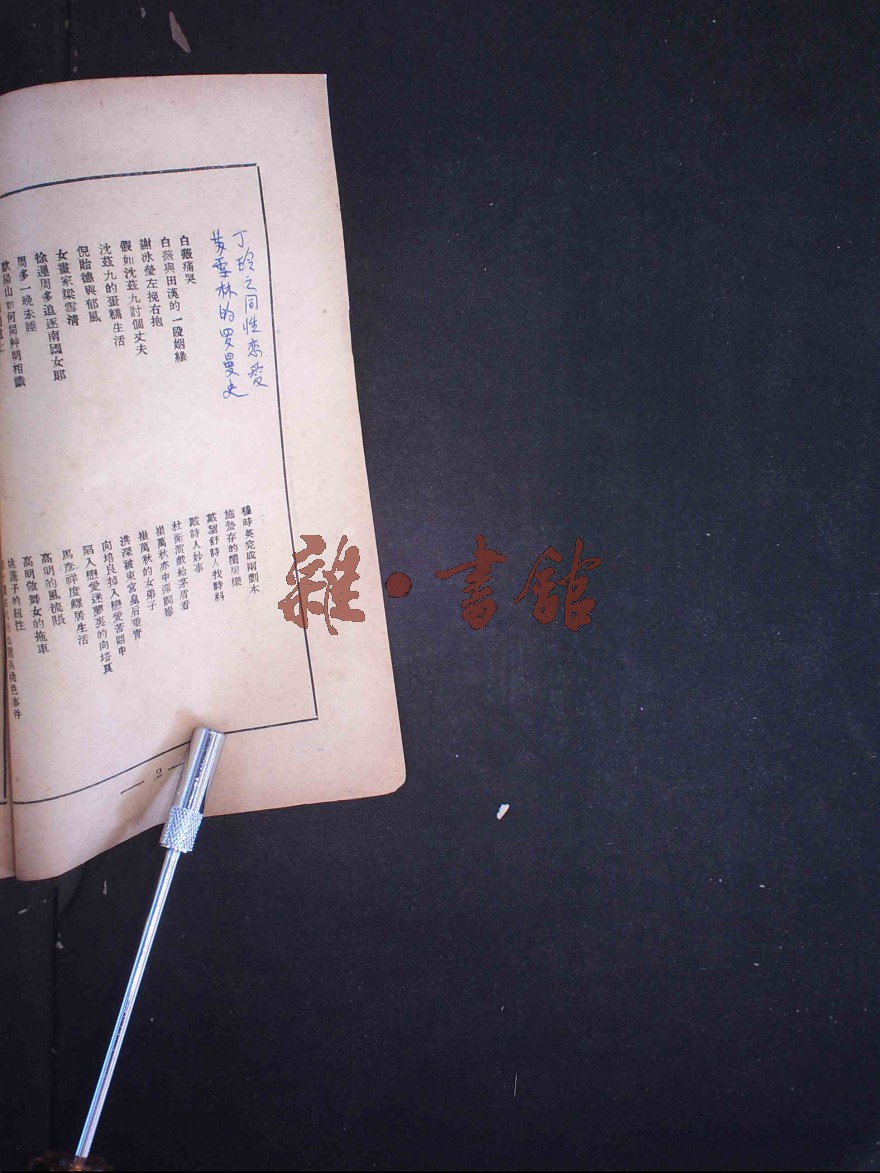 丁玲之同性恋爱
黄霊林的罗曼史
白薇痛哭
白薇與田漢的一段姻緣
謝冰瑩左挽右抱
假如沈茲九討個丈夫
沈茲九的蛋糕生活
倪貽德與郁風
女畫家梁雪清
徐遲周多追逐南國女郎
周多一晚未睡
歐陽山如何同草明相識
穆時英完成兩劇本
施蟄存的閨房樂
戴望舒詩人找詩料
戴詩人妙事
杜衡演戲給茅盾看
崔萬秋亦中彈闢謠
崔萬秋的女弟子
洪深被東宮皇后垂青
向培良掉入戀愛苦悶中
陷入戀愛迷夢裏的向培良
馬彥祥度鰥居生活
高明的風流賬
高明做舞女的拖車
姚蓬子的個性
桃色事件
— 2 —
雜·書館